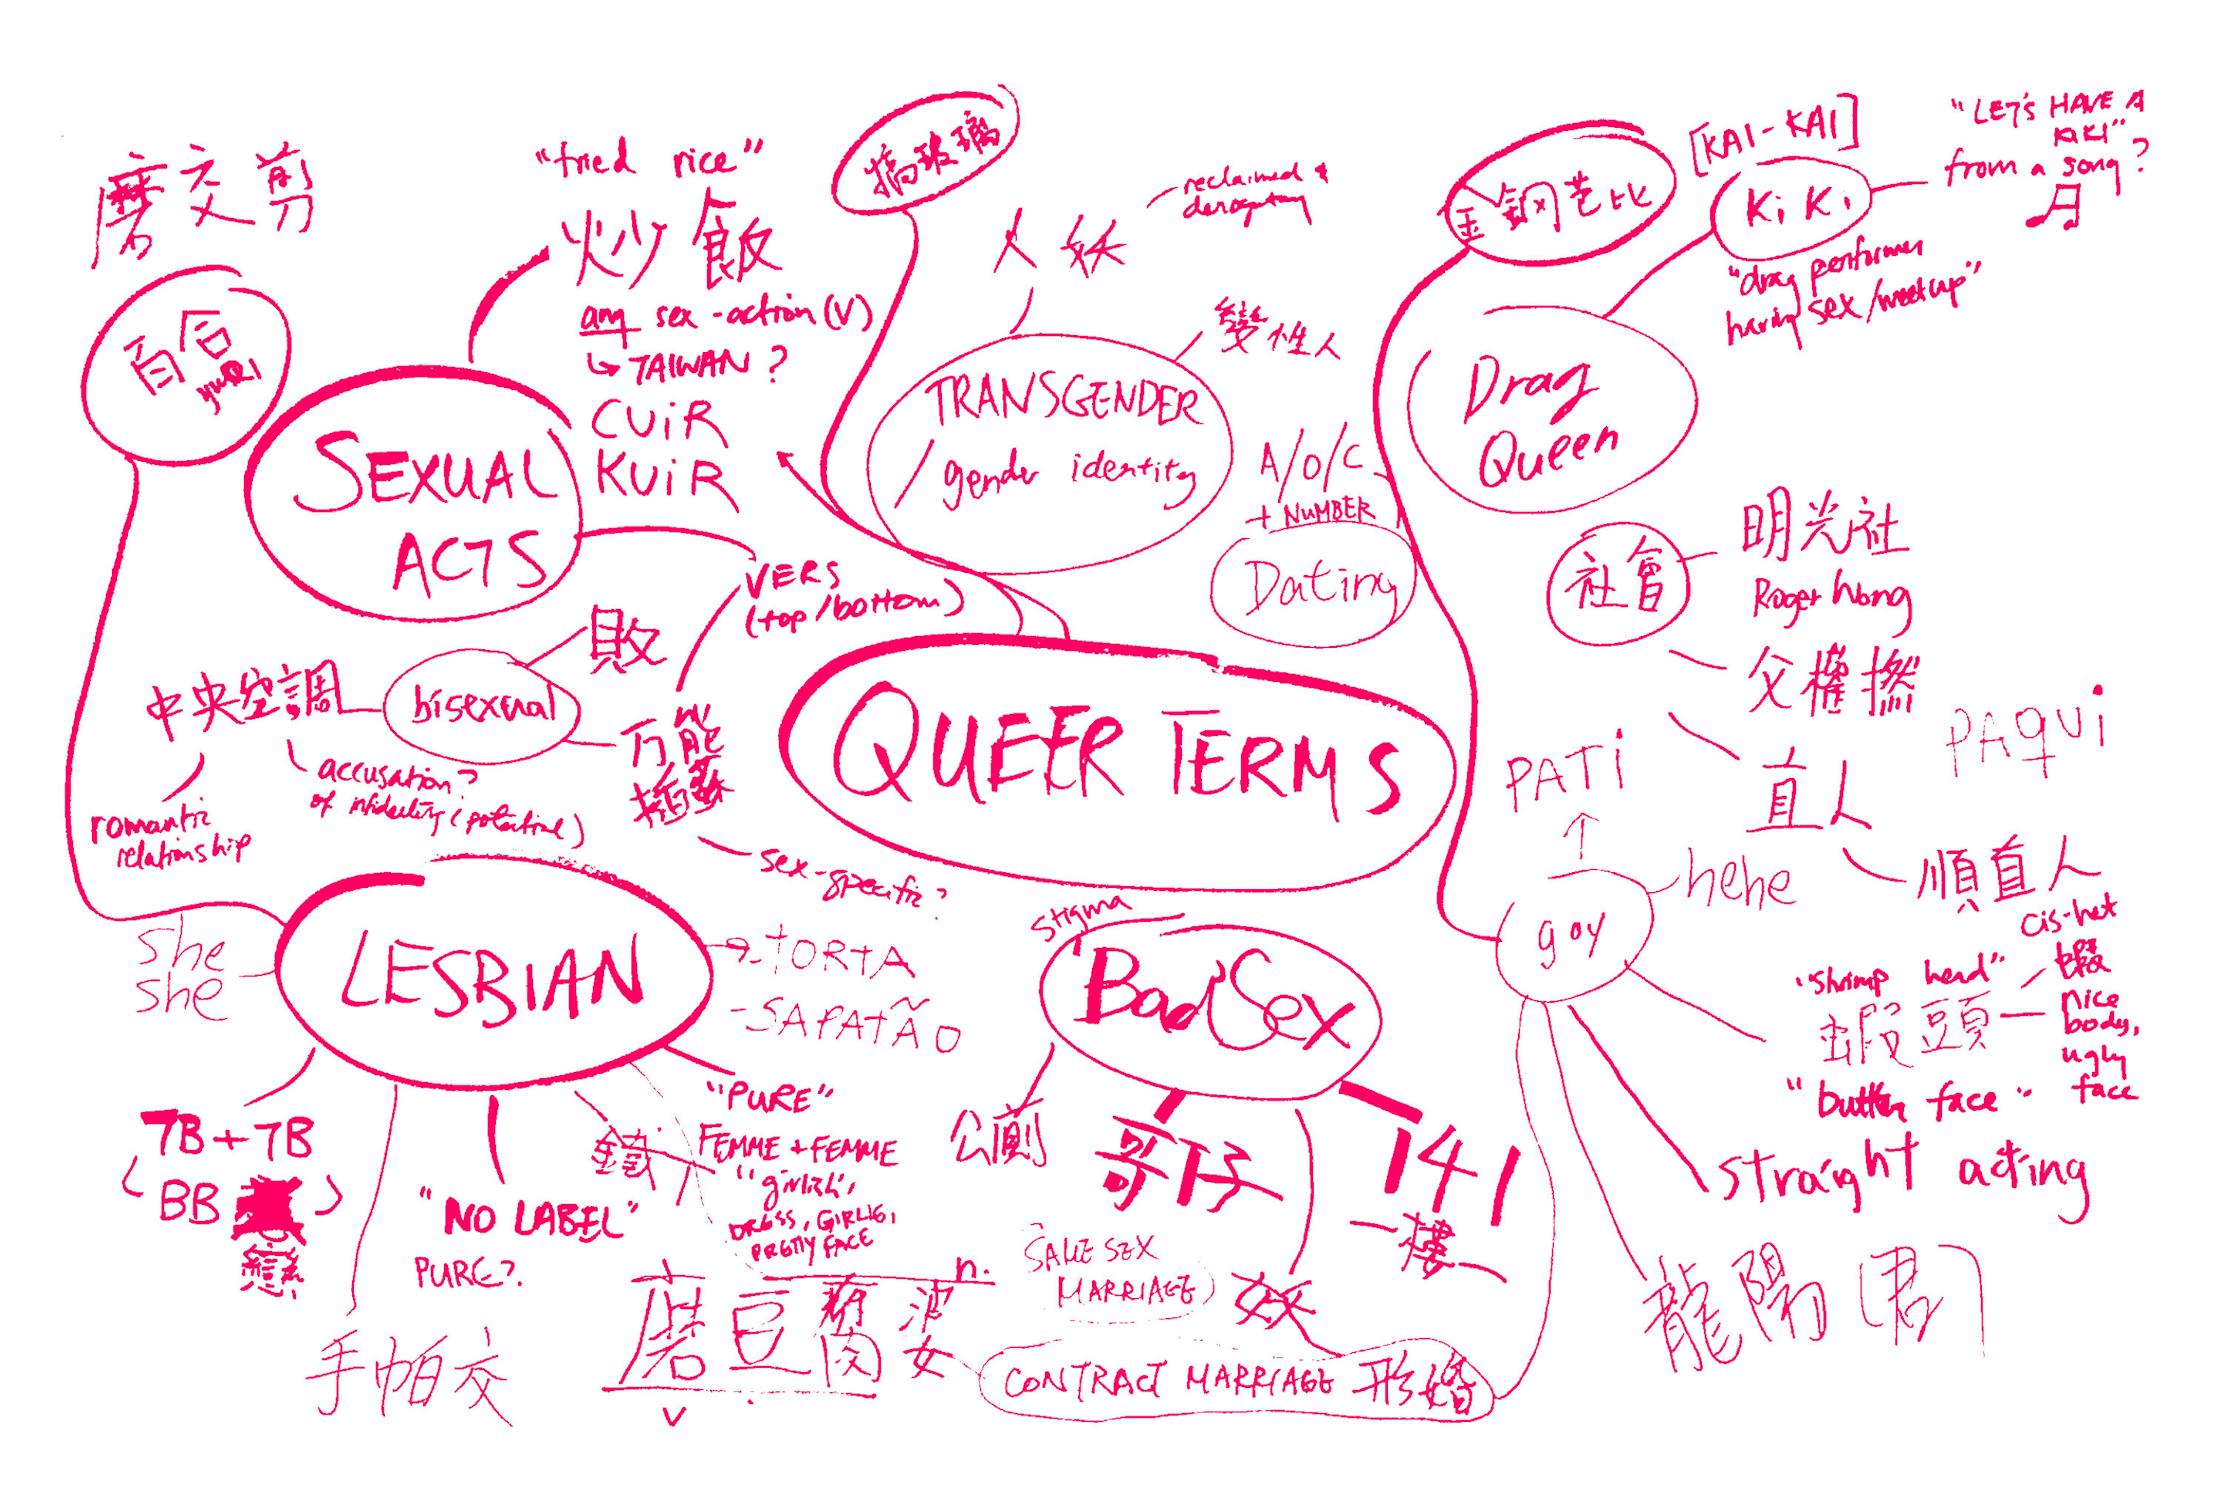 磨交剪
"fried rice"
炒飯
any sex-action (V)
↳ TAIWAN?
CUiR
KUiR
搞玻璃
人妖
reclaimed &
derogatory
變性人
TRANSGENDER
/ gender identity
A/O/C
+ NUMBER
Dating
金鋼芭比
[KAI-KAI]
KiKi
"LET'S HAVE A
KIKI"
from a song?
"drag performer
having sex/meetup"
Drag
Queen
百合
yuri
SEXUAL
ACTS
VERS
(top/bottom)
社會
明光社
Roger Wong
父權撚
直人
順直人
cis-het
PAQUi
PATi
↑
hehe
gay
中央空調
bisexual
敗
萬能
插蘇
romantic
relationship
accusation?
of infidelity (potential)
sex-specific?
QUEER TERMS
she
she
LESBIAN
→ TORTA
- SAPATÃO
stigma
Bad Sex
"shrimp head"
蝦頭
蝦
nice
body,
ugly
face
"butter face"
straight acting
龍陽(君)
TB + TB
(BB 戀)
"NO LABEL"
PURE?
鐵
"PURE"
FEMME + FEMME
"girlish",
DRESS, GIRLIE,
PRETTY FACE
公廁
哥仔
141
一樓一
SAME SEX
MARRIAGE)
手帕交
磨豆腐婆
n.
v
CONTRACT MARRIAGE 形婚